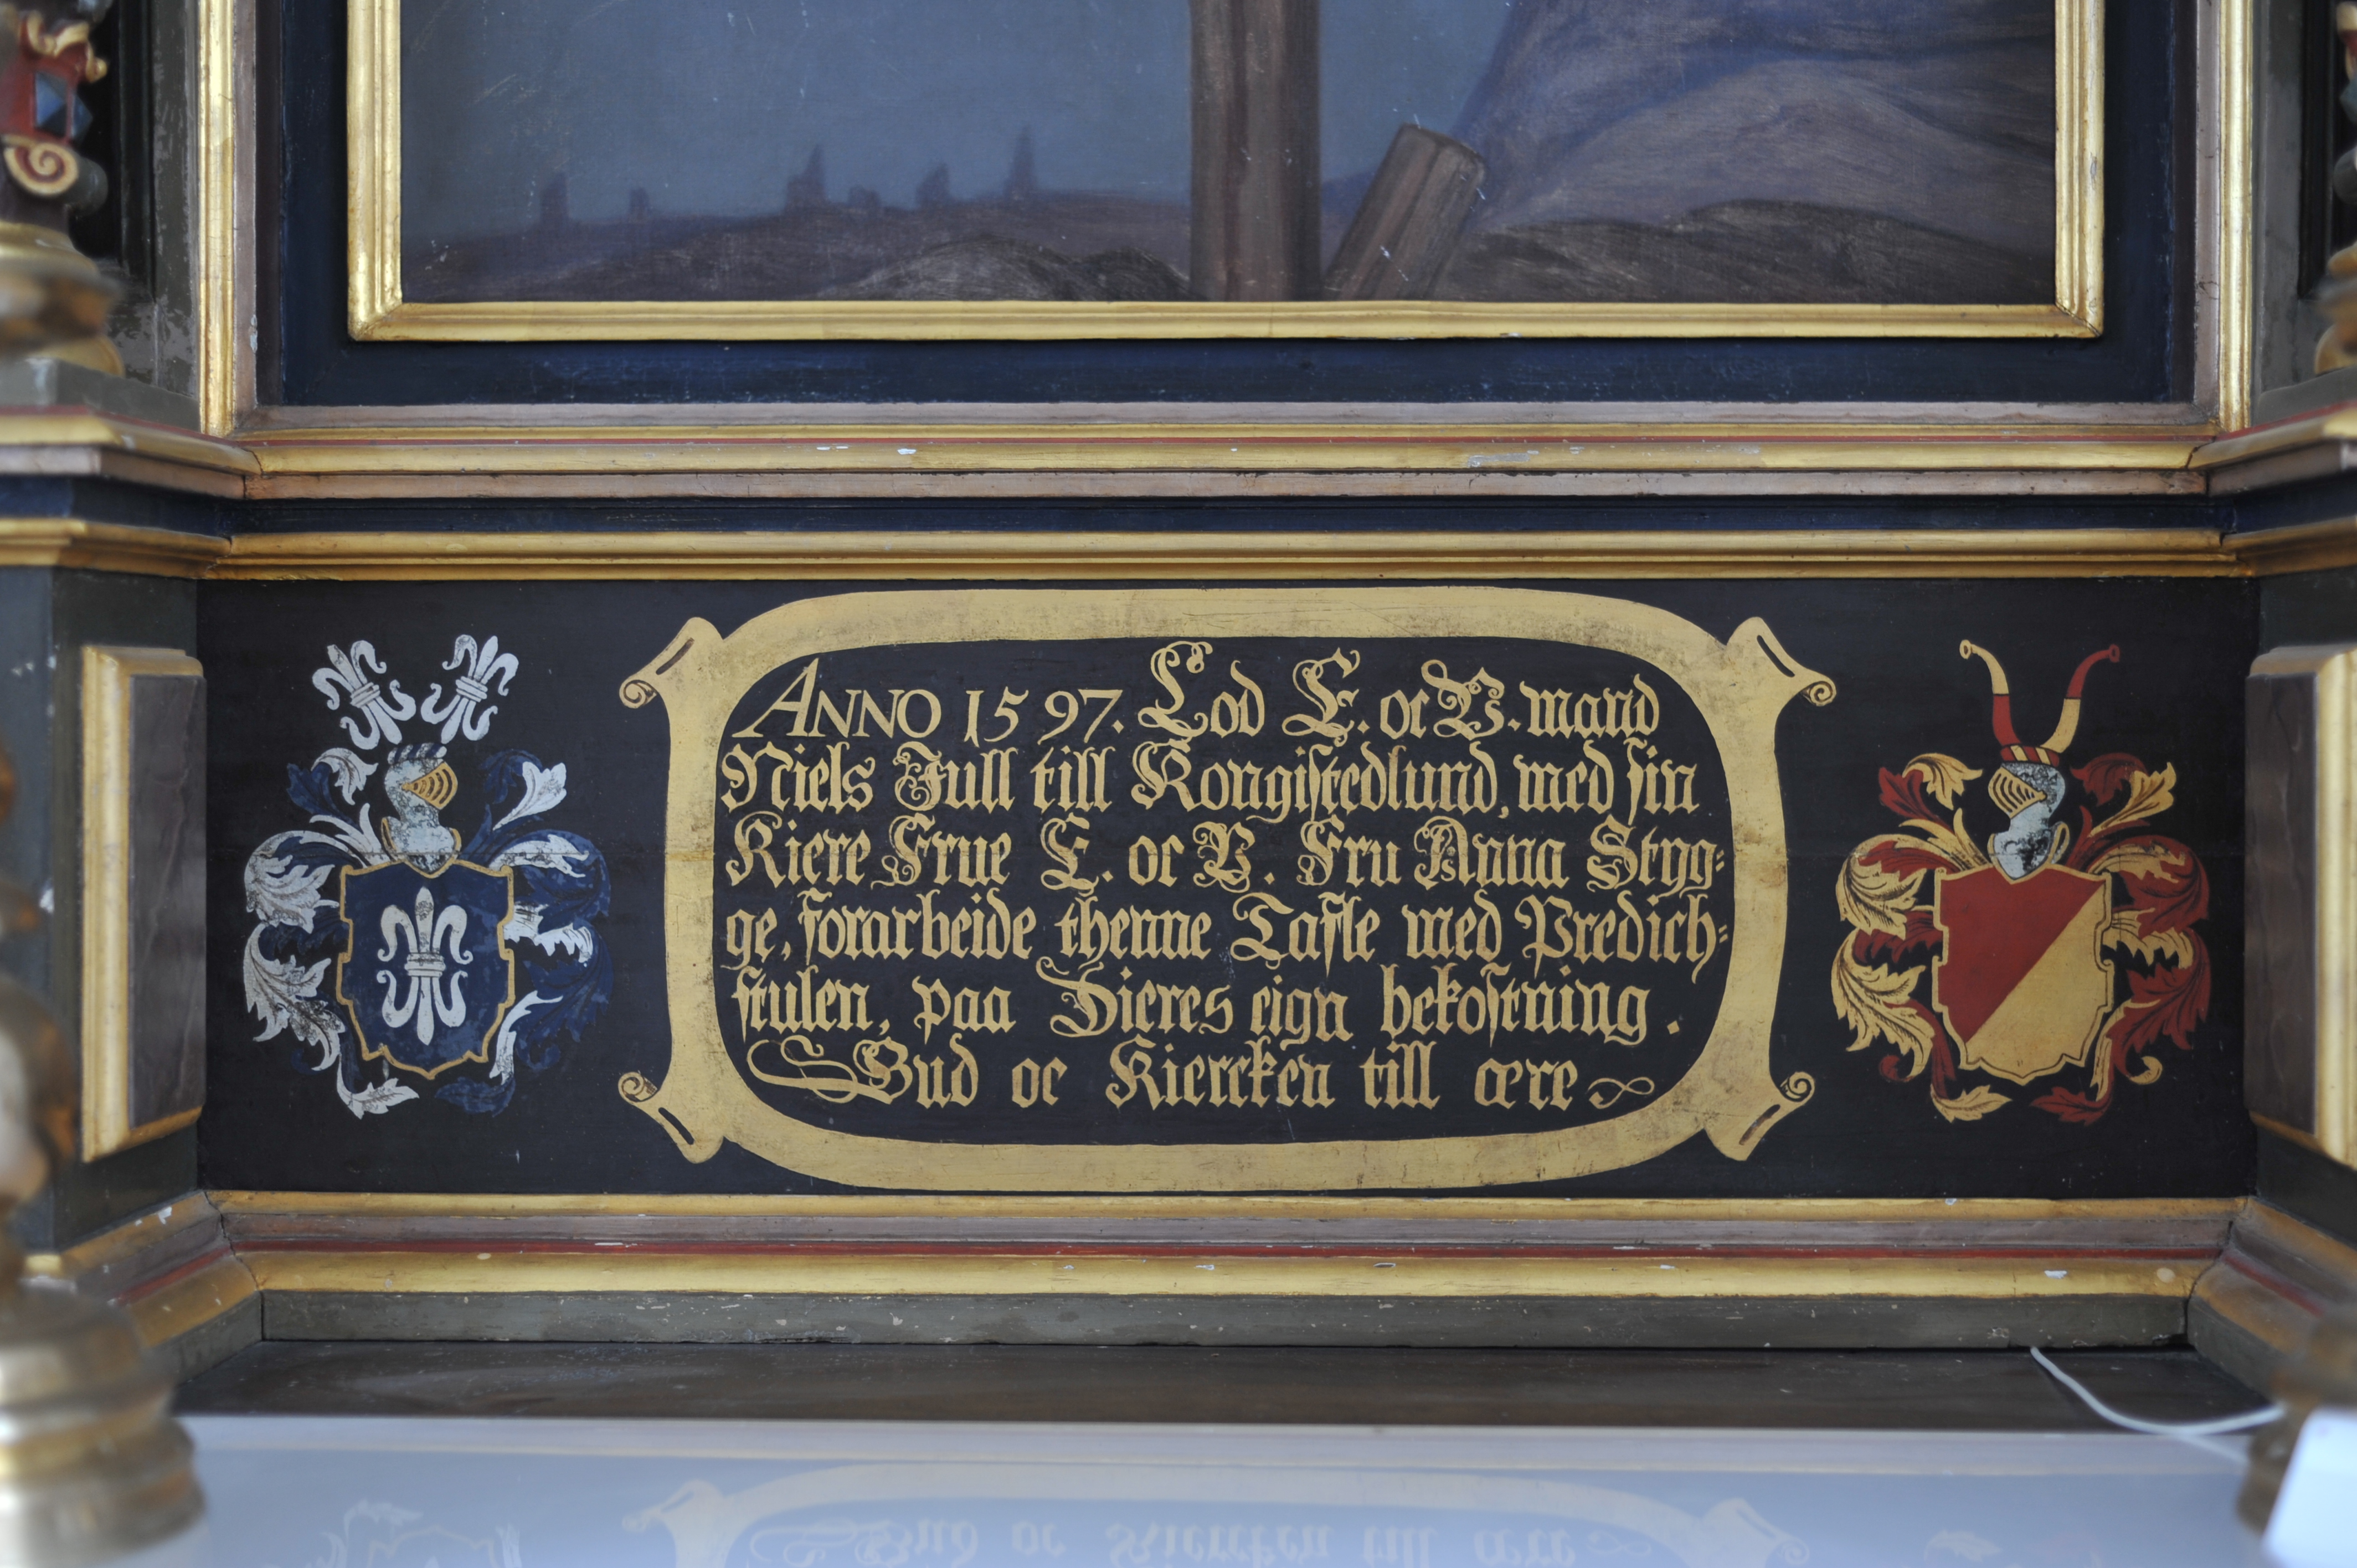 ANNO 1597. Lod E. oc V. mand
Niels Jull till Kongistedlund, med sin
Kiere Frue E. oc V. Fru Anna Styg⸗
ge, forarbeide thenne Tafle med Predich⸗
stulen, paa Dieres eign bekostning.
Gud oc Kiercken till ære